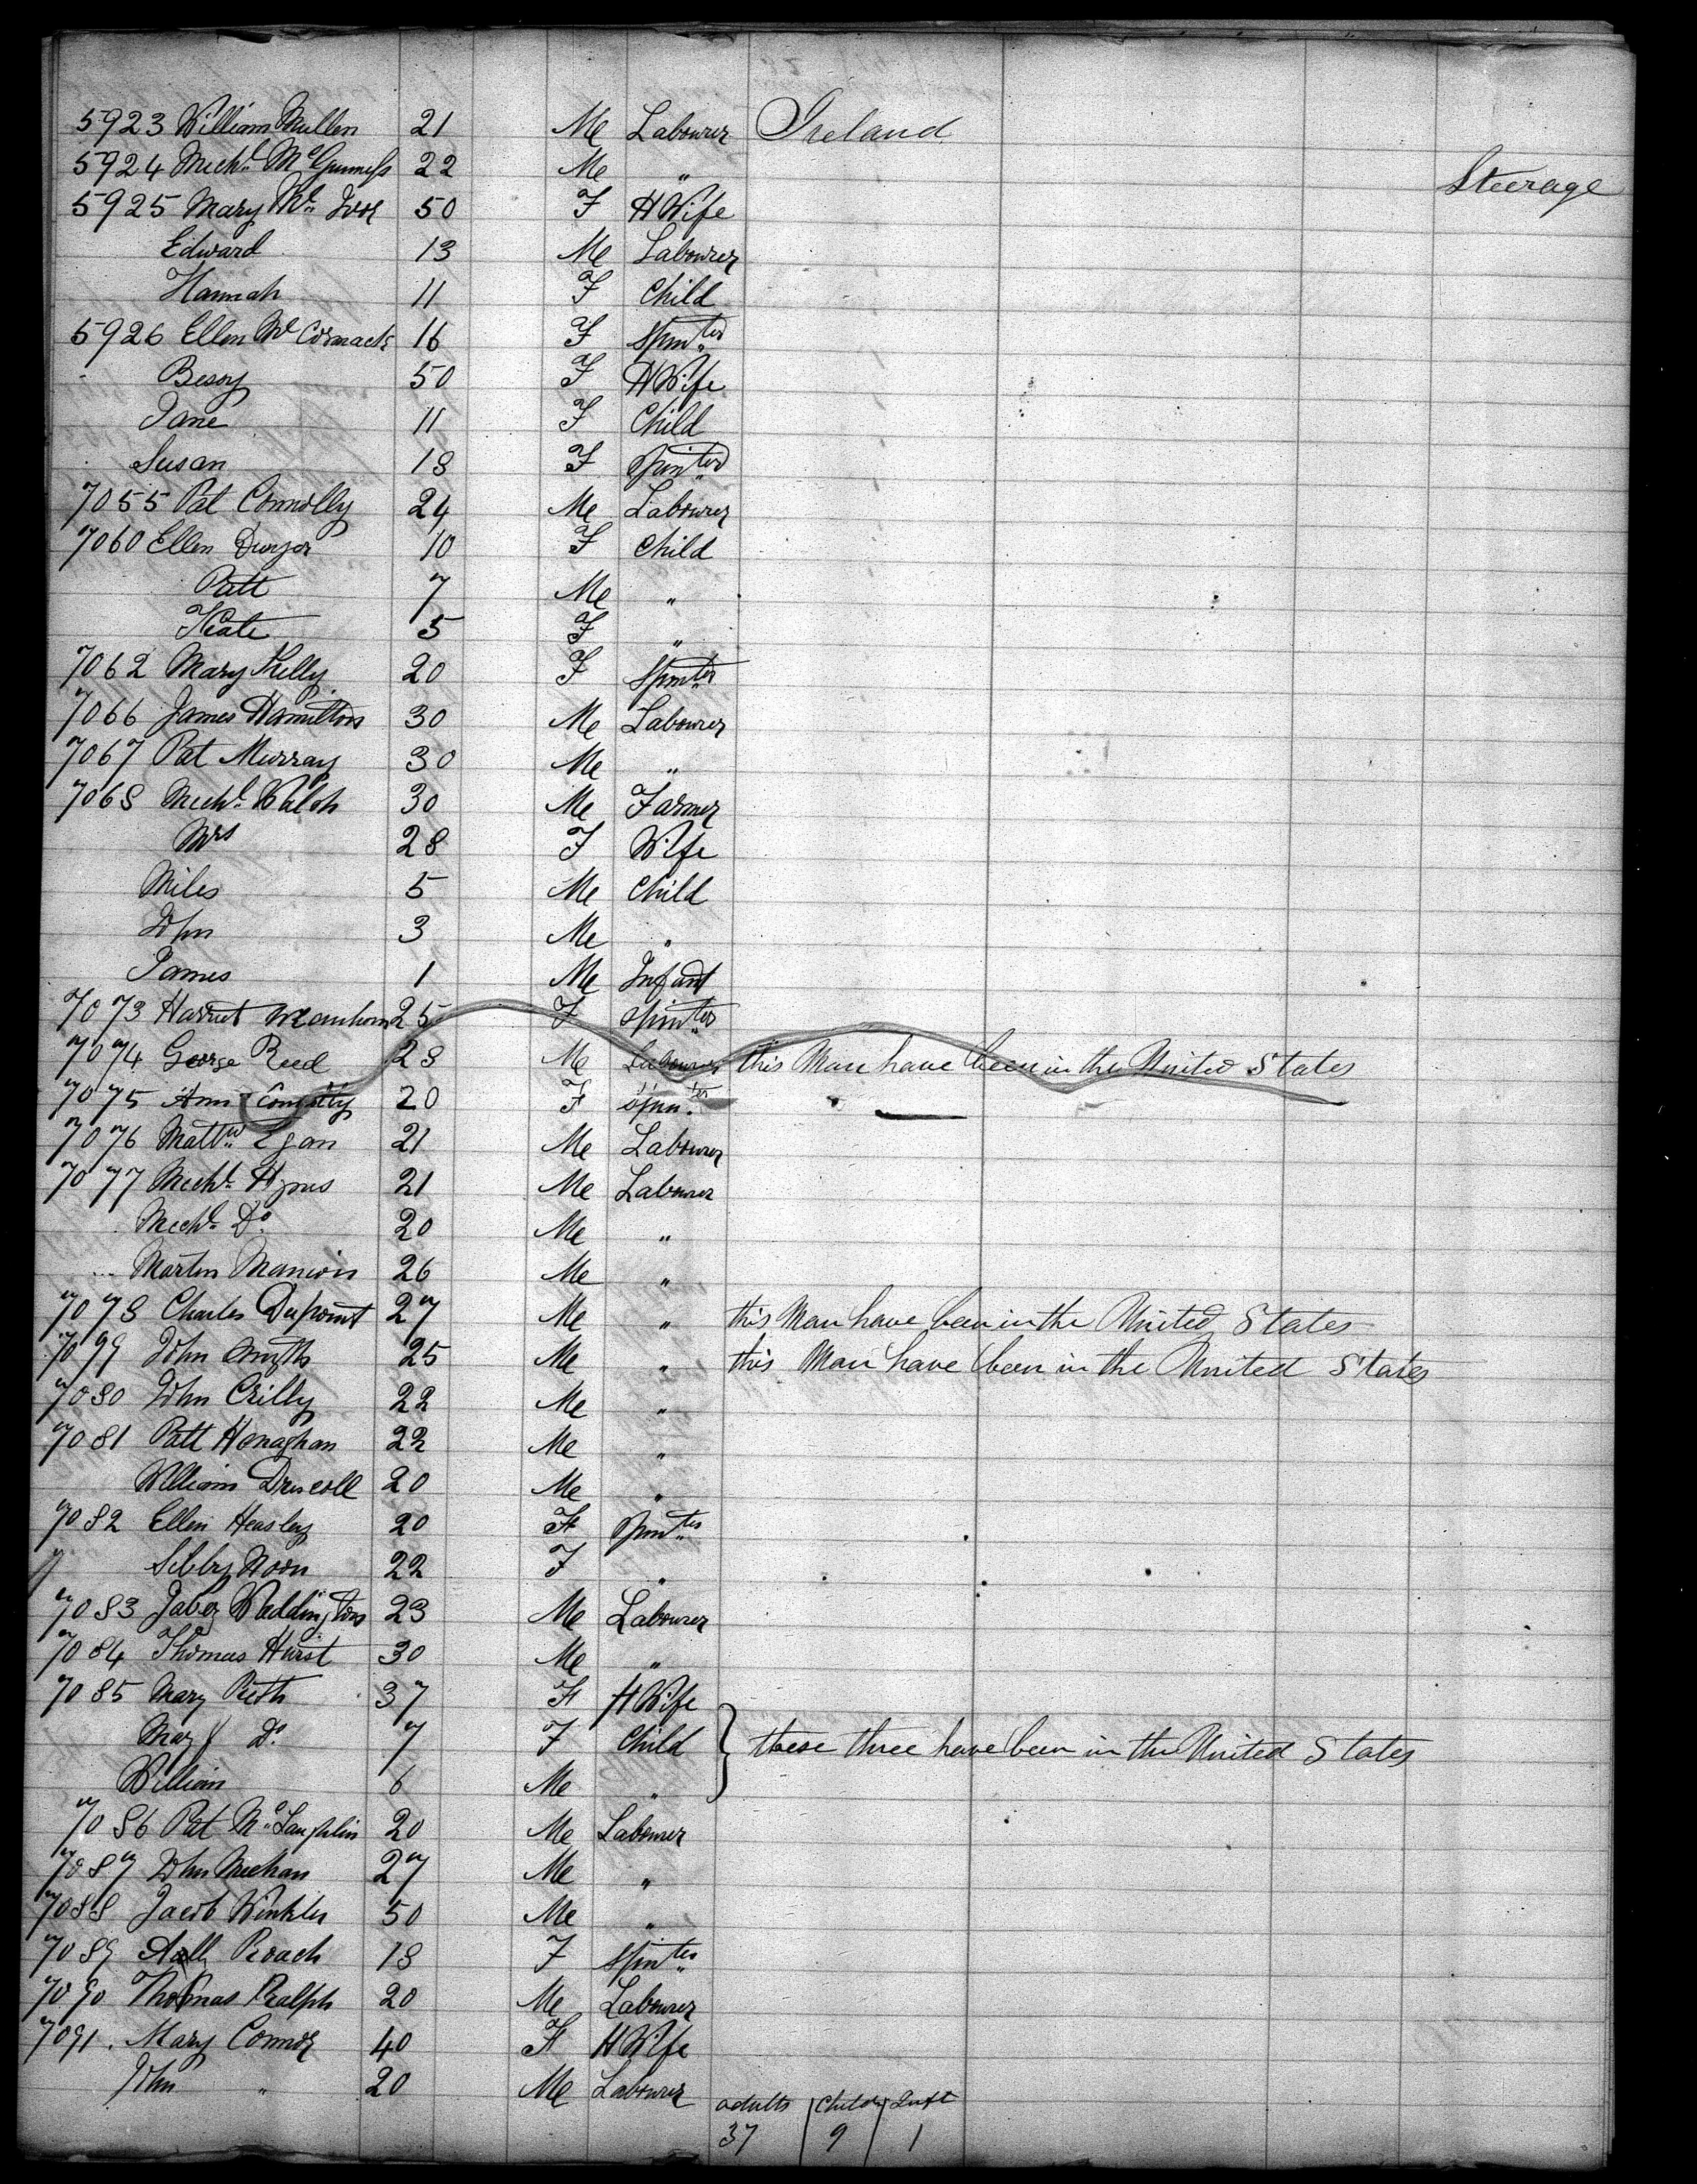 5923 William Mullen 21 Me Labourer Ireland
5924 Michl. McGuinness 22 Me " Steerage
5925 Mary Mc Ivor 50 F H Wife
Edward 13 Me Labourer
Hannah 11 F Child
5926 Ellen McCormack 16 F Spinter
Bessy 50 F H Wife
Jane 11 F Child
Susan 18 F Spinter
7055 Pat Connolly 24 Me Labourer
7060 Ellen Dwyer 10 F Child
Patt 7 Me "
Kate 5 F "
7062 Mary Kelly 20 F Spinter
7066 James Hamilton 30 Me Labourer
7067 Pat Murray 30 Me "
7068 Michl. Walsh 30 Me Farmer
Mrs 28 F Wife
Miles 5 Me Child
John 3 Me "
James 1 Me Infant
7073 Harriet 25 F Spinter
7074 George Reed 28 Me Labourer this Man have been in the United States
7075 Ann 20 F Spinter
7076 Mattw Egan 21 Me Labourer
7077 Michl. Hynes 21 Me Labourer
Michl. Do 20 Me "
Martin Mannion 26 Me "
7078 Charles Dupoint 27 Me " this Man have been in the United States
7099 John Smyth 25 Me " this Man have been in the United States
7080 John Crilly 22 Me "
7081 Patt Honaghan 22 Me "
William Driscoll 20 Me "
7082 Ellen Heasley 20 F Spinter
Sibby Noon 22 F "
7083 Jabez Waddington 23 Me Labourer
7084 Thomas Hurst 30 Me "
7085 Mary 37 F H Wife
Mary Do 7 F Child } these three have been in the United States
William 6 Me "
7086 Pat McLaughlin 20 Me Labourer
7087 John Meehan 27 Me "
7088 Jacob Winkler 50 Me "
7089 Roach 18 F Spinter
7090 Thomas Ralph 20 Me Labourer
7091 Mary Connor 40 F H Wife
John " 20 Me Labourer
adults Childn Inft
37 9 1